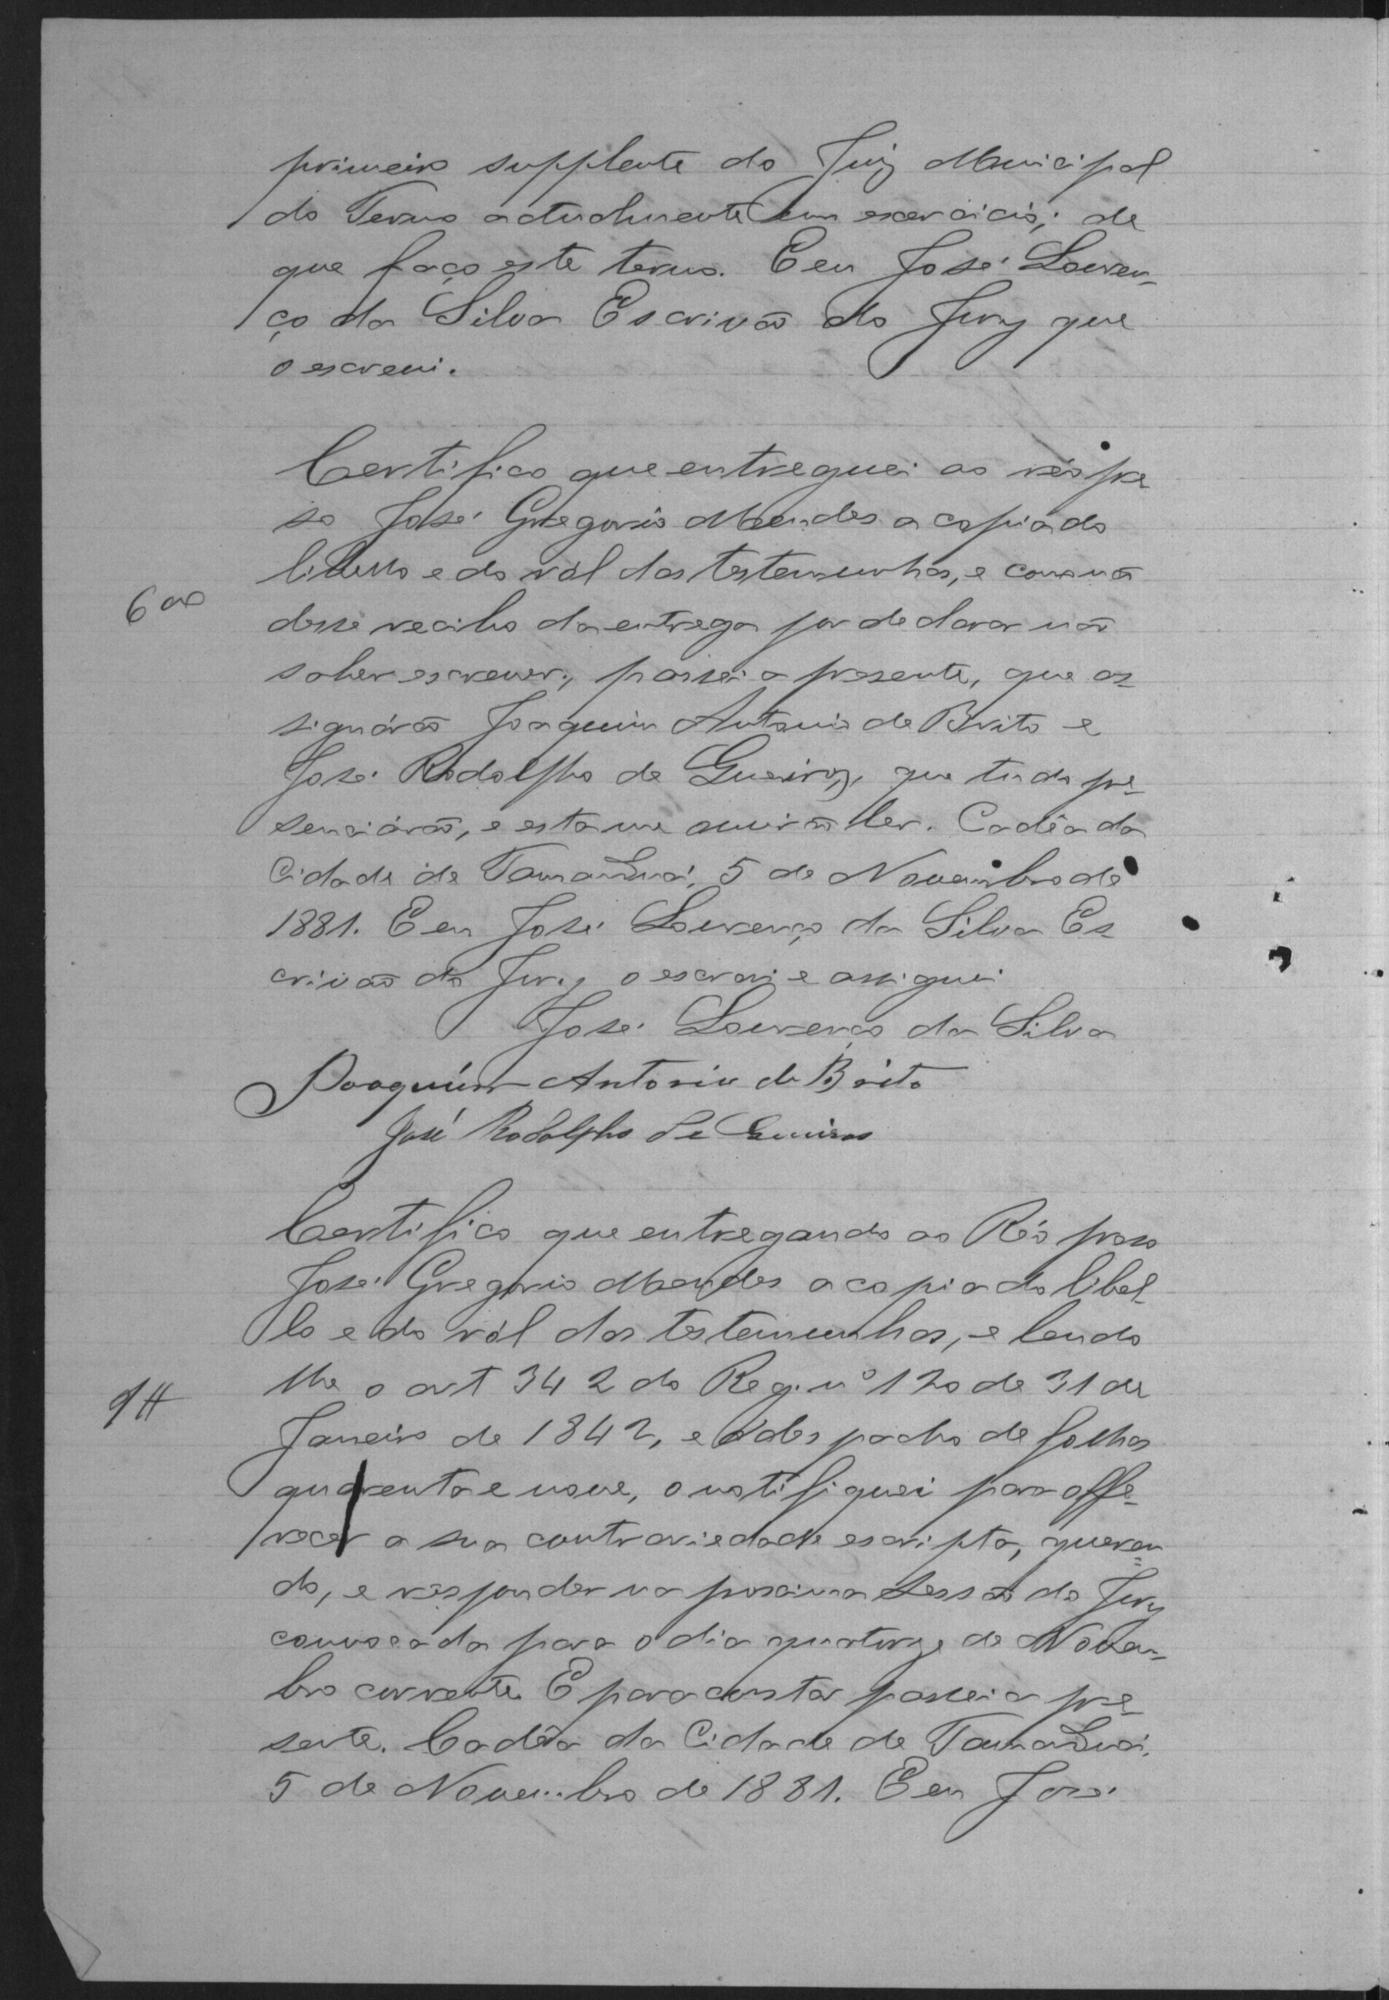 primeiro supplente do Juiz Municipal
do Termo actualmente em exercicio; de
que faço este termo. E eu José Louren-
ço da Silva Escrivão do Jury que
o escrevi.
Certifico que entreguei ao réo pre
so José Gregorio Mendes a copia do
libello e do ról das testemunhas, e como não
desse recibo da entrega por declarar não
saber escrever, passei a presente, que as-
signárão Joaquim Antonio de Brito e
José Rodolpho de Queiroz, que tudo pre-
senciárão, e esta me ouvirão ler. Cadêa da
Cidade de Tamanduá, 5 de Novembro de
1881. E eu José Lourenço da Silva Es
crivão do Jury o escrevi e assignei
José Lourenço da Silva
Joaquim Antonio de Brito
José Rodolpho de Queiros
600
Certifico que entregando ao Réo preso
José Gregorio Mendes a copia do libel-
lo e do ról das testemunhas, e lendo
lhe o art 342 do Reg. nº 120 de 31 de
Janeiro de 1842, e o despacho de folhas
quarenta e nove, o notifiquei para offe-
recer a sua contrariedade escripta, queren-
do, e responder na proxima Sessão do Jury
convocada para o dia quatorze de Novem-
bro corrente. E para constar passei a pre-
sente. Cadêa da Cidade de Tamanduá,
5 de Novembro de 1881. E eu José